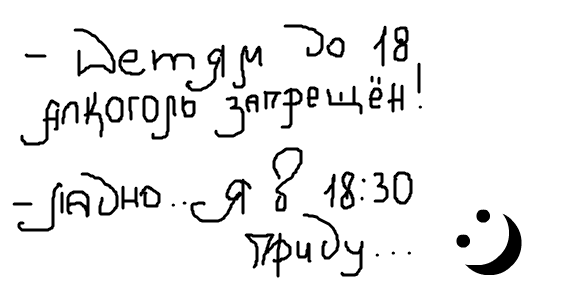 - Детям до 18
алкоголь запрещён!
- Ладно.. я в 18:30
приду...